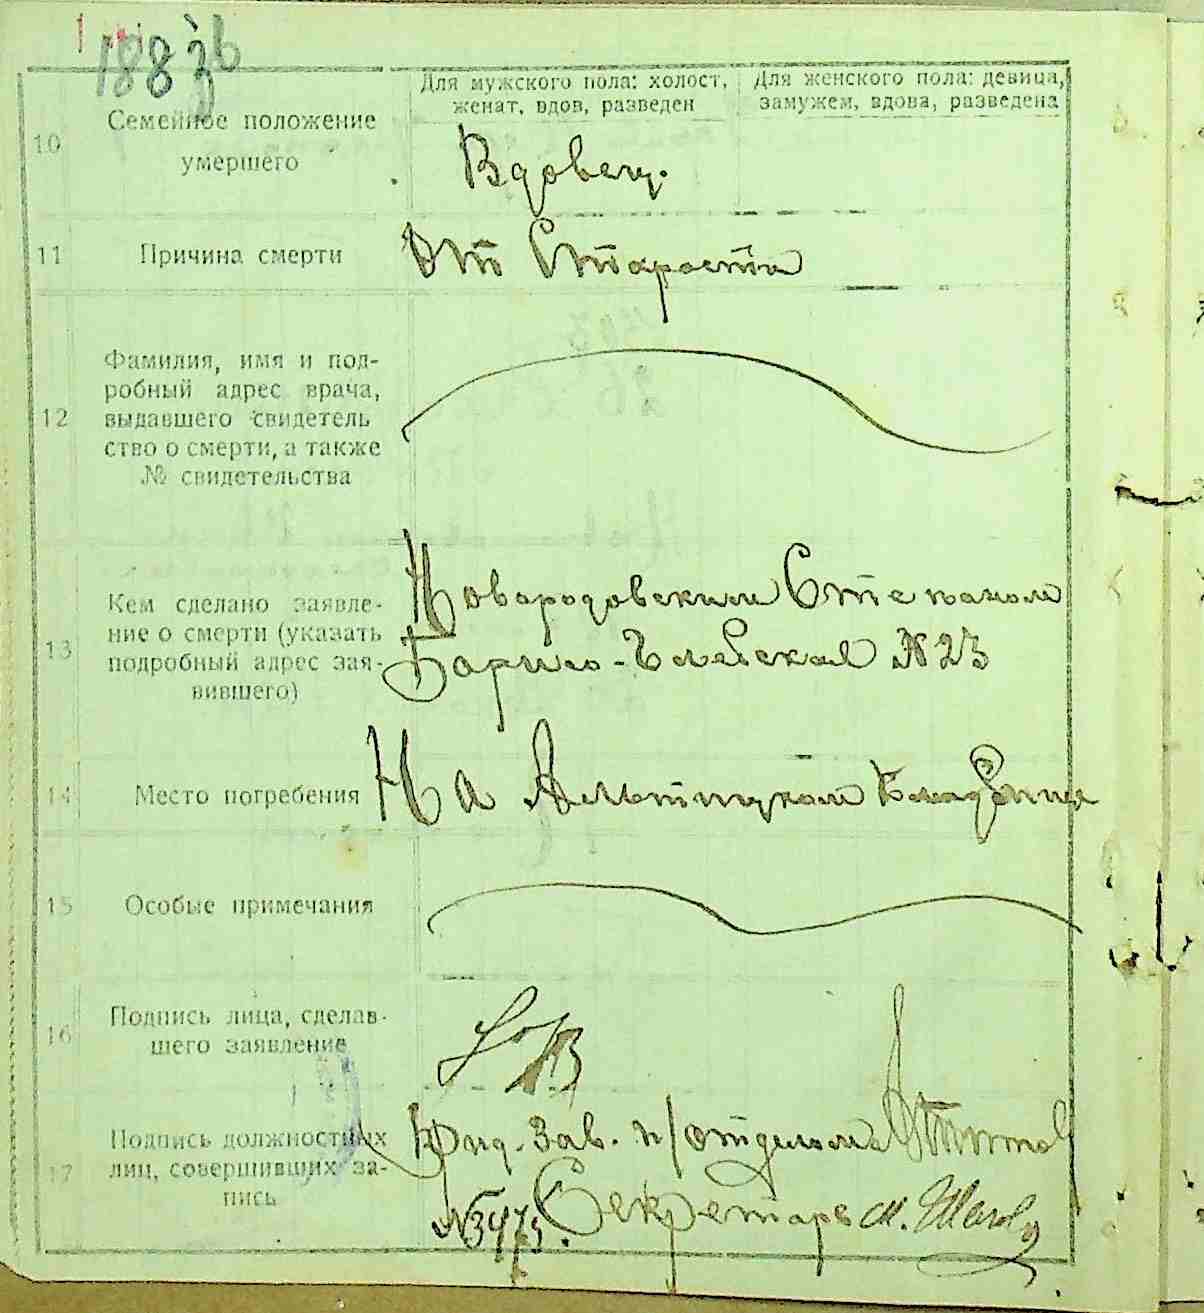 1883
Для мужского пола: холост, женат, вдов, разведен
Для женского пола: девица, замужем, вдова, разведена
10
Семейное положение умершего
Вдовец.
11
Причина смерти
От Старости
12
Фамилия, имя и под-
робный адрес врача,
выдавшего свидетель
ство о смерти, а также
№ свидетельства
13
Кем сделано заявле-
ние о смерти (указать
подробный адрес зая-
вившего)
Новородовским Степаном
Борисо-Глебская №23
14
Место погребения
На кладбище
15
Особые примечания
16
Подпись лица, сделав-
шего заявление
17
Подпись должностных
лиц, совершивших за-
пись
Зав. п/отделом
Секретарь М.
№3475.